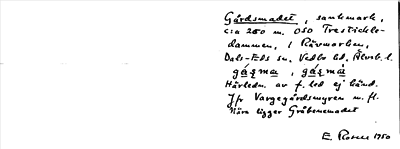 Gårdsmadet, sankmark,
c:a 250 m. OSO Trestickle-
dammen, i Rävmarken,
Dals-Eds sn, Vedbo hd, Älvsb. l.
Härledn. av f. led ej känd.
Jfr Vargegårdsmyren m. fl.
Nära ligger Gråbenemadet
E. Rosell 1950